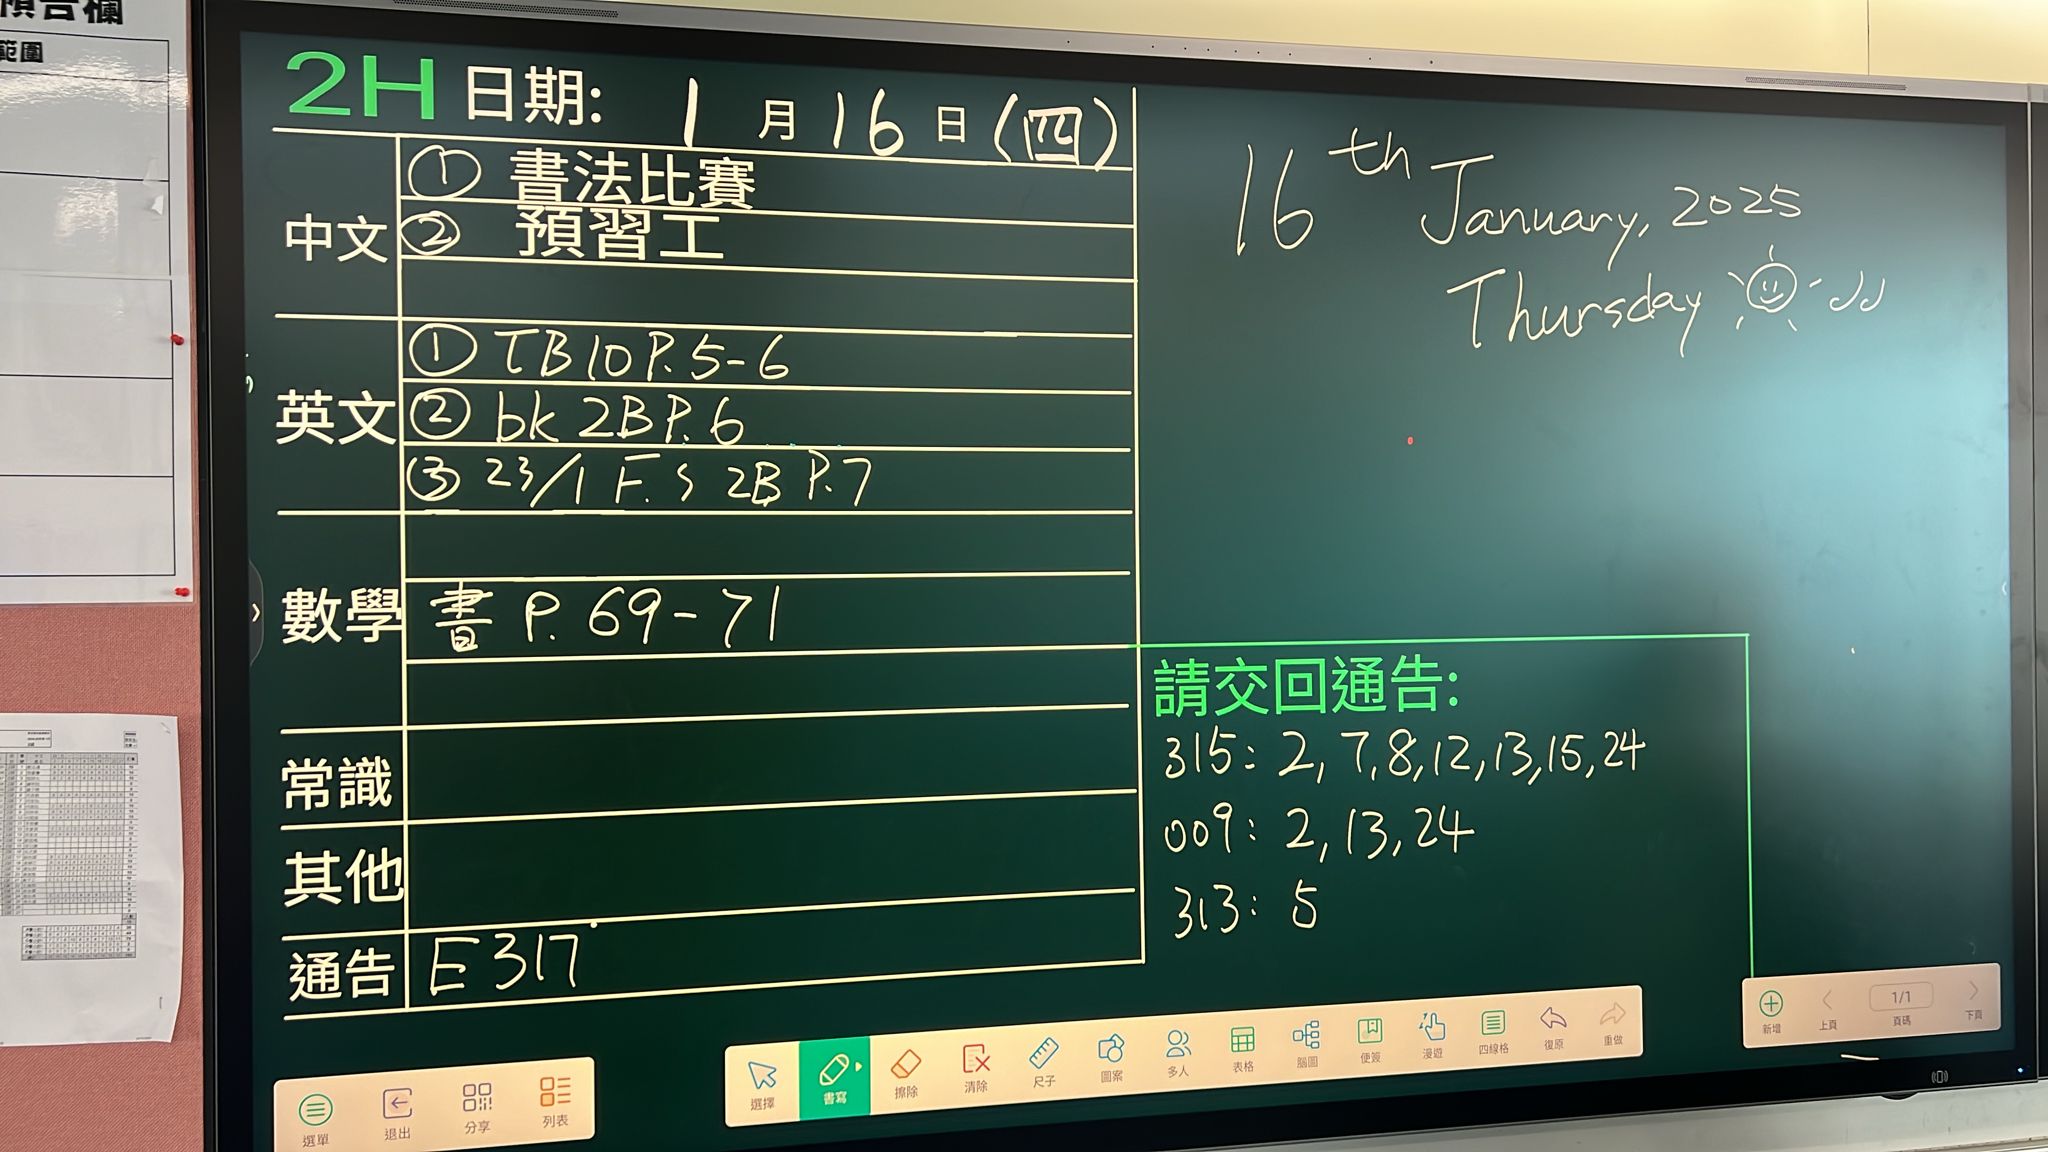 預告欄
範圍
2H 日期: 1 月 16 日 (四)
中文
① 書法比賽
② 預習工
英文
① TB10 P. 5-6
② bk 2B P. 6
③ 23/1 F. S 2B P. 7
數學
書 P. 69-71
常識
其他
通告
E 317
16th January, 2025
Thursday
請交回通告:
315: 2, 7, 8, 12, 13, 15, 24
009: 2, 13, 24
313: 5
選單 退出 分享 列表
選擇 書寫 擦除 清除 尺子 圖案 多人 表格 腦圖 便簽 漫遊 四線格 復原 重做
新增 上頁 1/1 頁碼 下頁